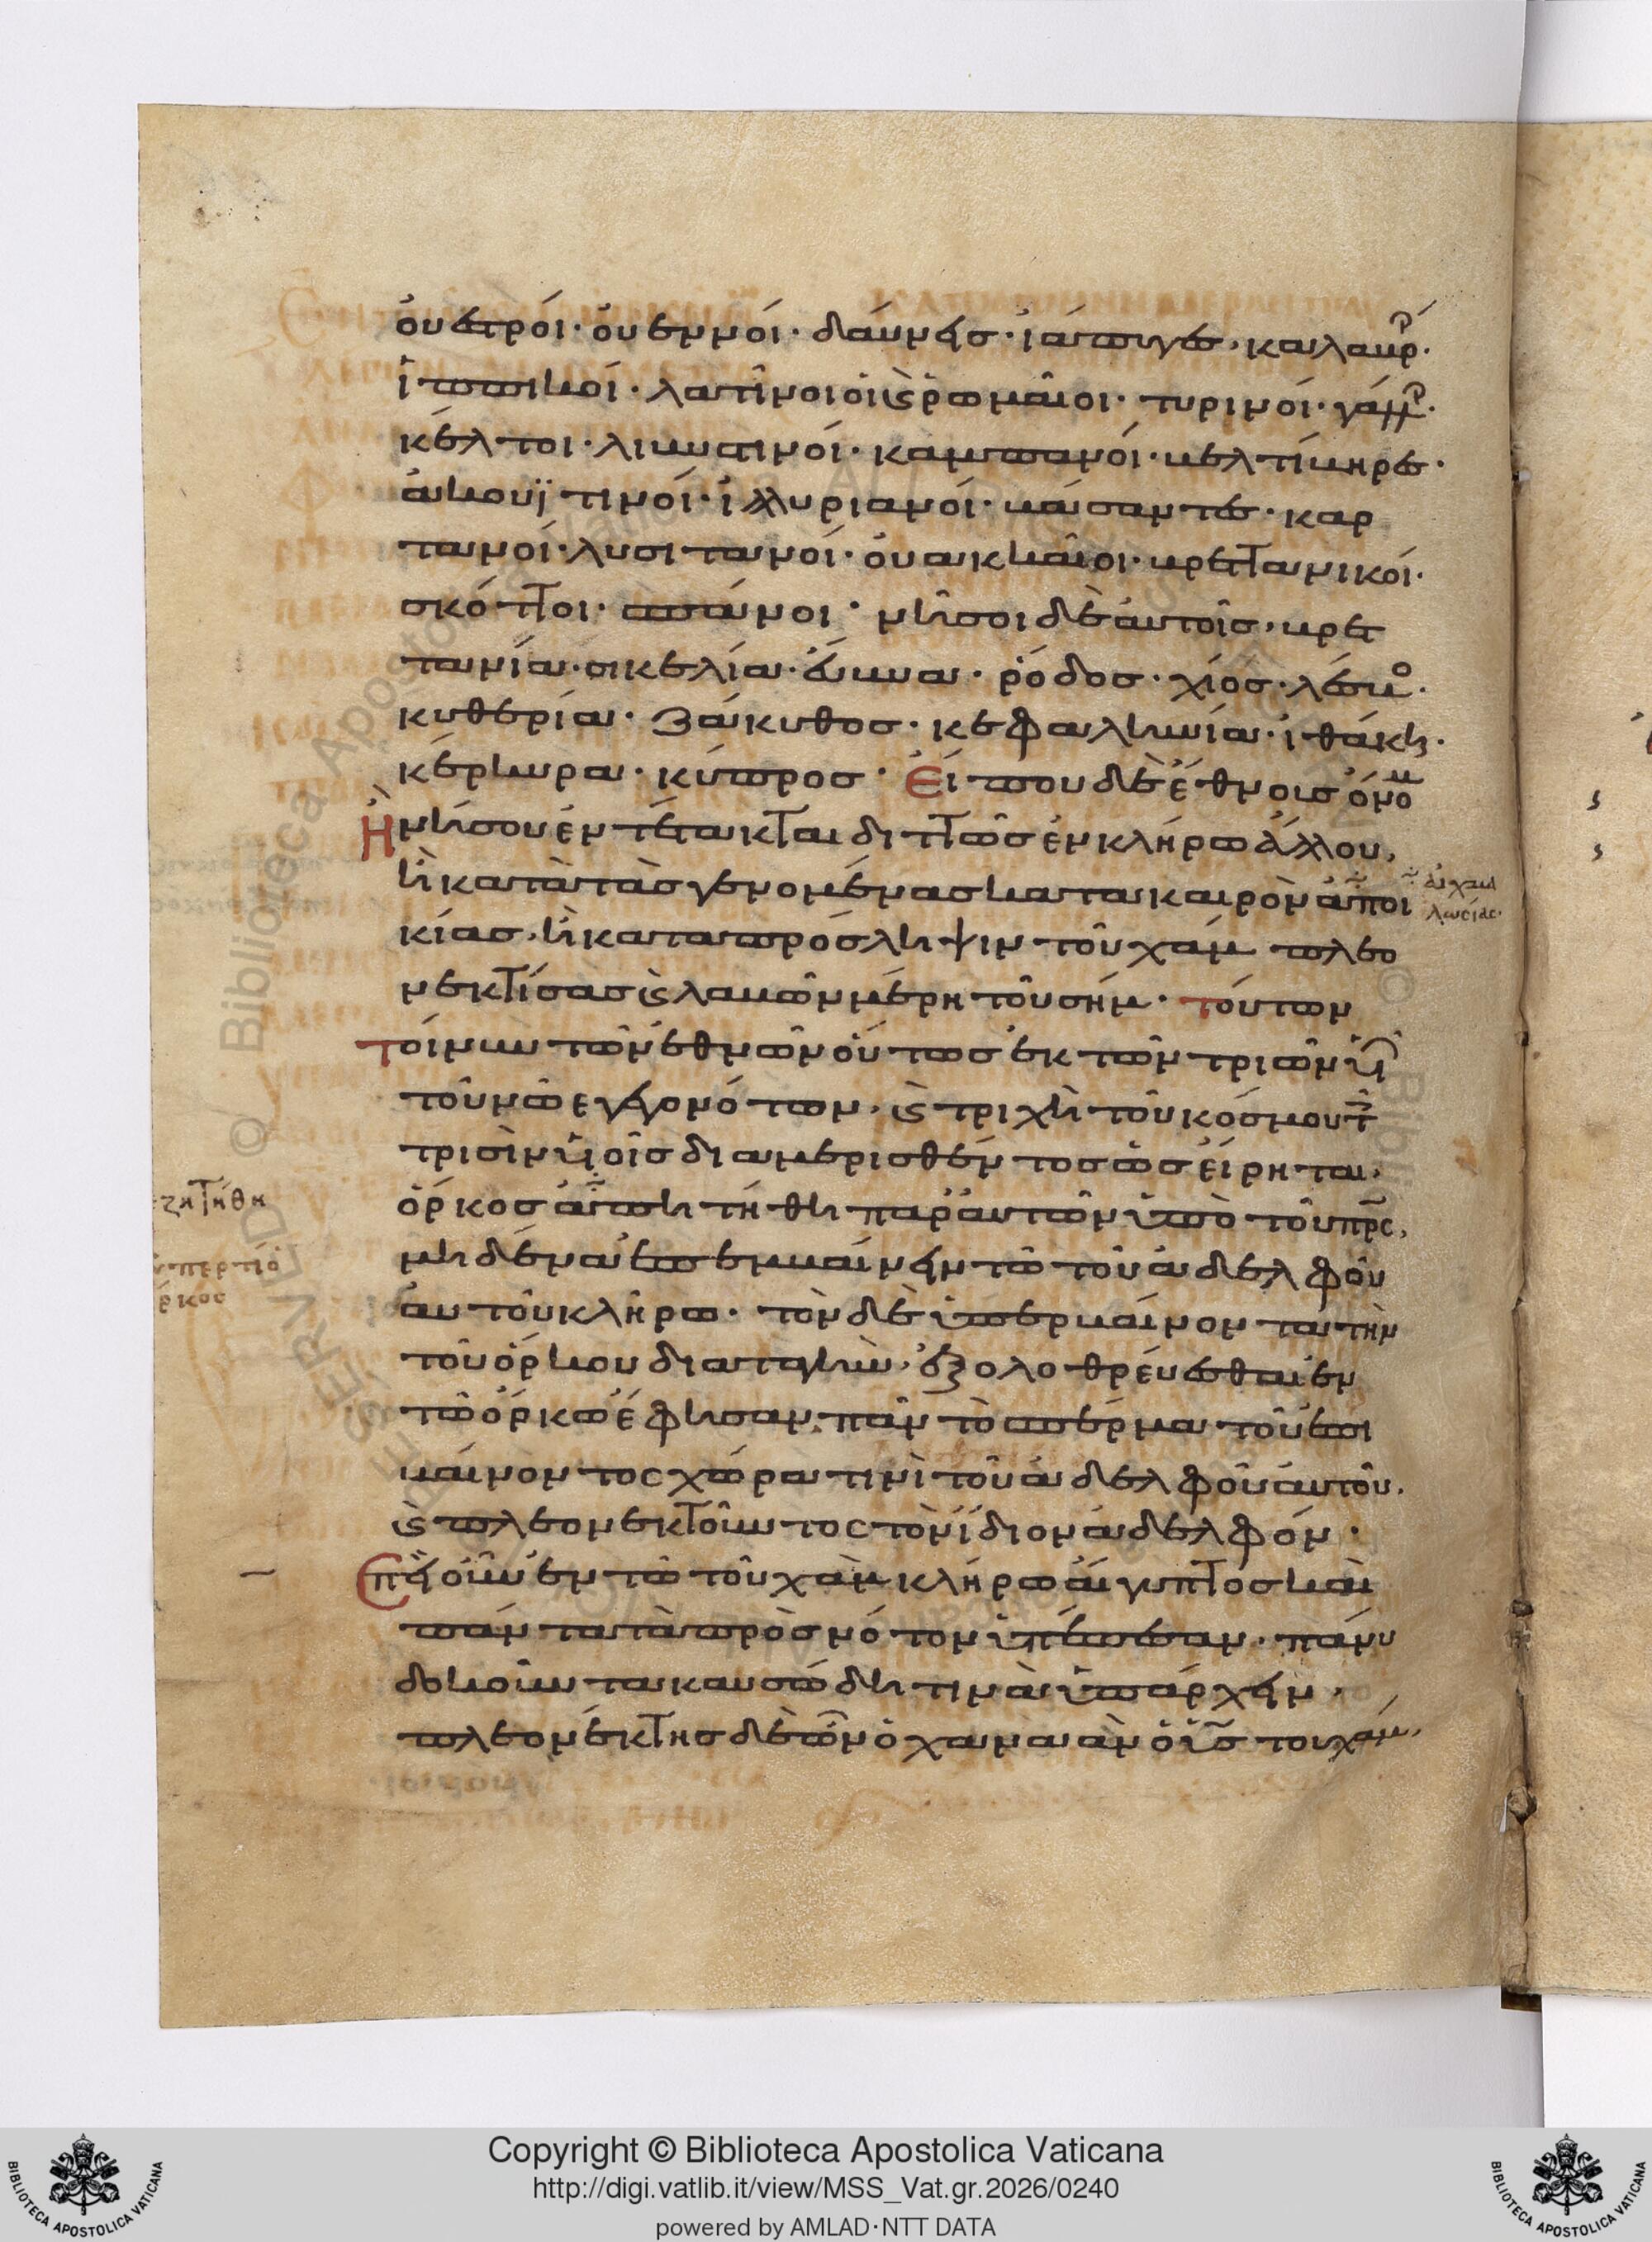 ὀυετροί· ὀυεννοί· δάυνεισ· ἰάπυγεσ, καλαυρ·
ἱσπανοί· λατῖνοι ὁι ϗ ῥωμαῖοι· τυρινοί· γάλλ·
κέλτοι· λιγυστινοί· καμπανοί· κελτίβηρεσ·
ἀκουϊτινοί· ἰλλυριανοί· βάσαντεσ· καρ
τανοί· λυσιτανοί· ὀυακκαῖοι· βρεττανικοί·
σκόττοι· σπάνοι· νῆσοι δὲ ἀυτοῖσ, βρετ
τανία· σικελία· ἔυβοια· ῥόδοσ· χίοσ· λέσβο·
κυθερία· ζάκυνθοσ· κεφαλληνία· ἰθάκη·
κέρκυρα· κύπροσ· Εἴ που δὲ ἔθνοισ ὄνομ
Ἢ νήσου ἐντέτακται διττῶσ ἐν κλήρω ἄλλου,
ἢ κατὰ τὰσ γενομένασ κατα καιρὸν ἀποι
κίασ, ἢ κατα πρόσληψιν τοῦ χαμ πλεο
νεκτίσασ ϗ λαβὼν μέρη τοῦ σήμ· τούτων
τοίνυν τῶν ἐθνῶν ὅυτωσ ἐκ τῶν τριῶν υἱ
τοῦ νῶε γεγονότων, ϗ τριχῆ τοῦ κόσμου τ
τρισὶν υἱοῖσ διαμερισθέντοσ ὡσ εἴρηται,
ὅρκοσ ἀπητήθη παρ ἀυτῶν ὑπὸ τοῦ πρς,
μηδένα ἐπεμβαίνειν τῶ τοῦ ἀδελφοῦ
ἀυτοῦ κλήρω· τὸν δὲ ὑπερβαίνον ταυτὴν
τοῦ ὅρκου διαταγὴν, ἐξολοθρεύεσθαι ἐν
τῶ ὅρκω ἔφησαν, πᾶν τὸ σπέρμα τοῦ ἐπι
βαίνοντος χώρα τινὶ τοῦ ἀδελφοῦ ἀυτοῦ.
ϗ πλεονεκτοῦντος τὸν ἴδιον ἀδελφόν·
Ἐπεὶ οὖν ἐν τῶ τοῦ χὰμ κλήρω ἄιγυπτοσ καὶ
πάντα τὰ πρὸσ νότον ὑπέπεσαν, πάνυ
δοκοῦντα καυσώδη τινὰ ὑπάρχειν,
πλεονέκτησ δὲ ὢν ὁ χαναὰν ὁ υἱσ του χάμ,
ἀιχμα
λωσίασ·
ἐζητήθη
ὑπερ τι ὁ
ὅρκοσ
Copyright © Biblioteca Apostolica Vaticana
http://digi.vatlib.it/view/MSS_Vat.gr.2026/0240
powered by AMLAD·NTT DATA
BIBLIOTECA APOSTOLICA VATICANA
BIBLIOTECA APOSTOLICA VATICANA